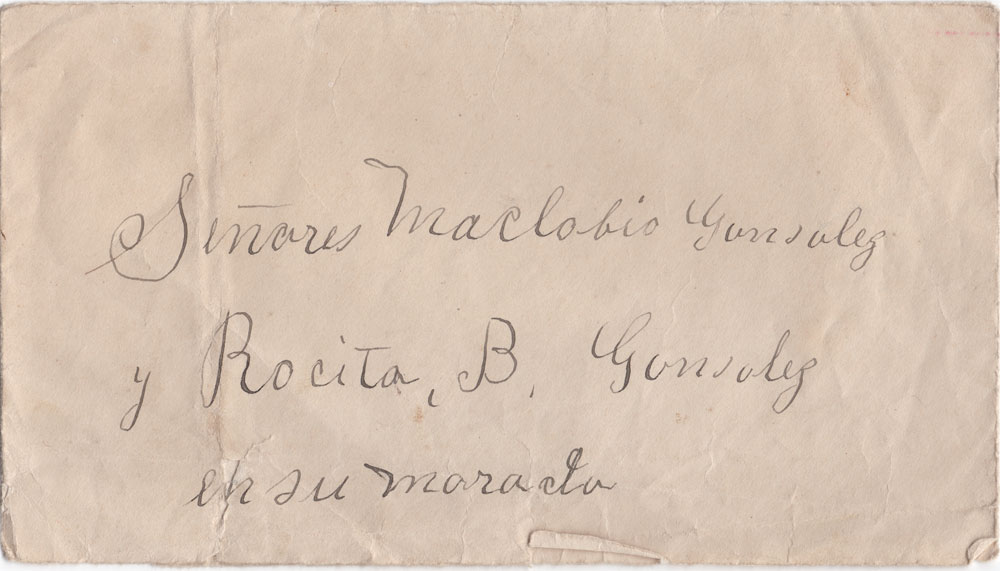 Señores Maclobio Gonsalez
y Rocita, B. Gonsalez
en su morada